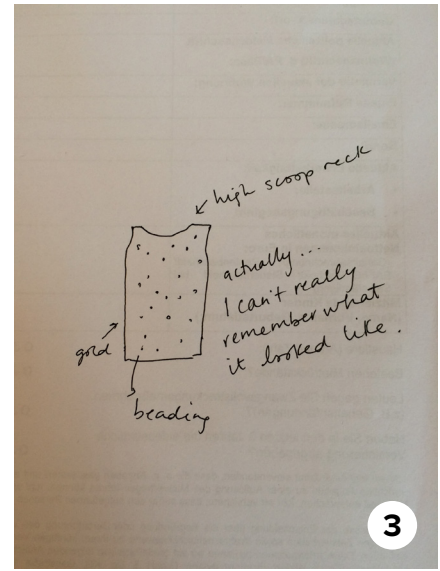 high scoop neck
actually...
I can't really
remember what
it looked like.
gold
beading
3